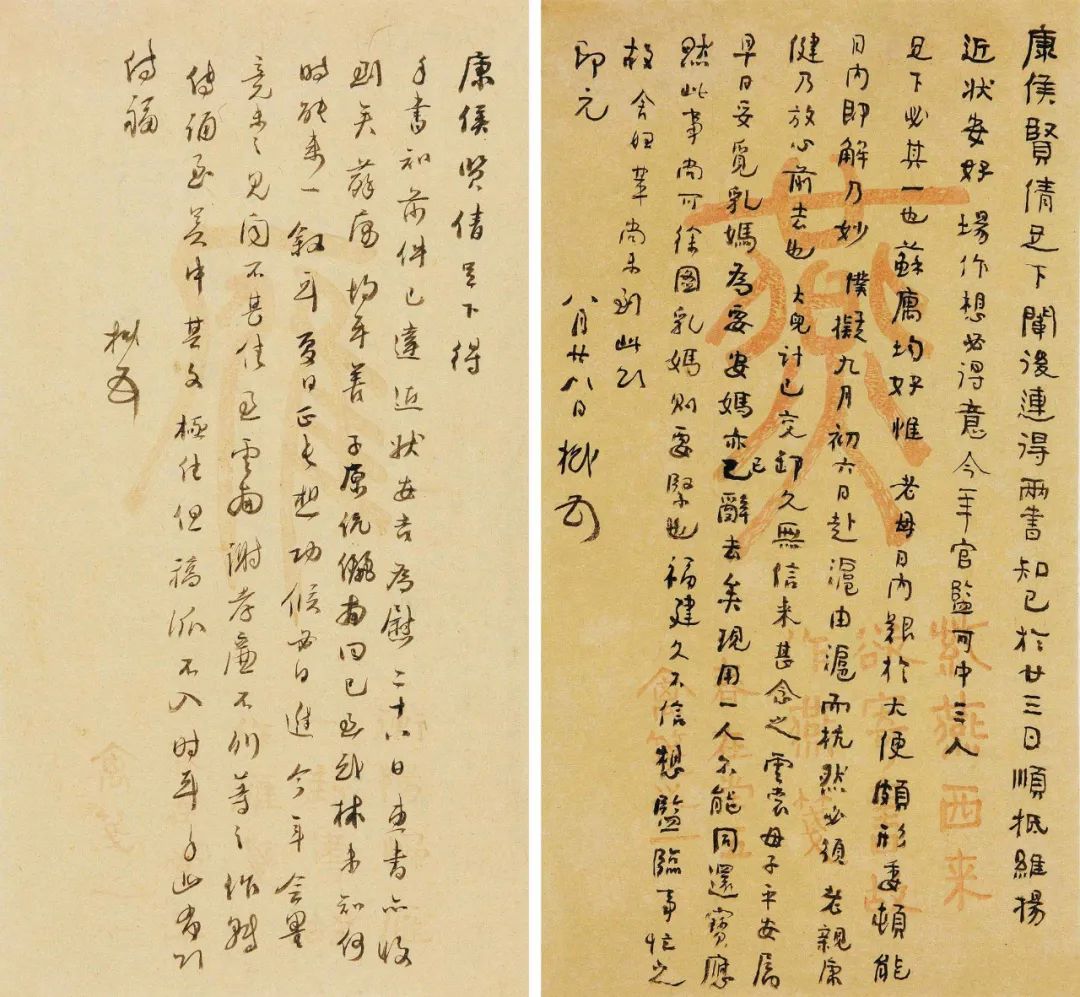 康侯賢倩足下闈後連得兩書知已於廿三日順抵維揚
近狀安好 場作想必得意今年官監可中三人
足下必其一也蘇寓均好惟 老母日內艱於大便頗形委頓能
日內即解乃妙 僕擬九月初六日赴滬由滬而杭然必須 老親康
健乃放心前去也 大兒計已交卸久無信来甚念之雲裳母子平安屬
早日妥覓乳媽為要安媽亦已辭去矣現用一人不能同還寶應
然此事尚可徐圖乳媽則要緊也福建久不信想監臨事忙之
故 舍姪輩尚未到此頌
即元
八月廿八日 樾頓
燕
紫燕西来
欲寄書故
作燕箋
春在堂
康侯賢倩足下得
手書知前件已達近狀安吉為慰二十八日惠書亦收
到矣蘇寓均平善 子原伉儷南回已至武林未知何
時能來一敘耳夏日正長想功候必日進今年會墨
竟未之見聞不甚佳至雲南謝孝廉不列等之作則
傳誦至吳中其文極佳但稿派不入時耳手此布頌
侍福
樾頓